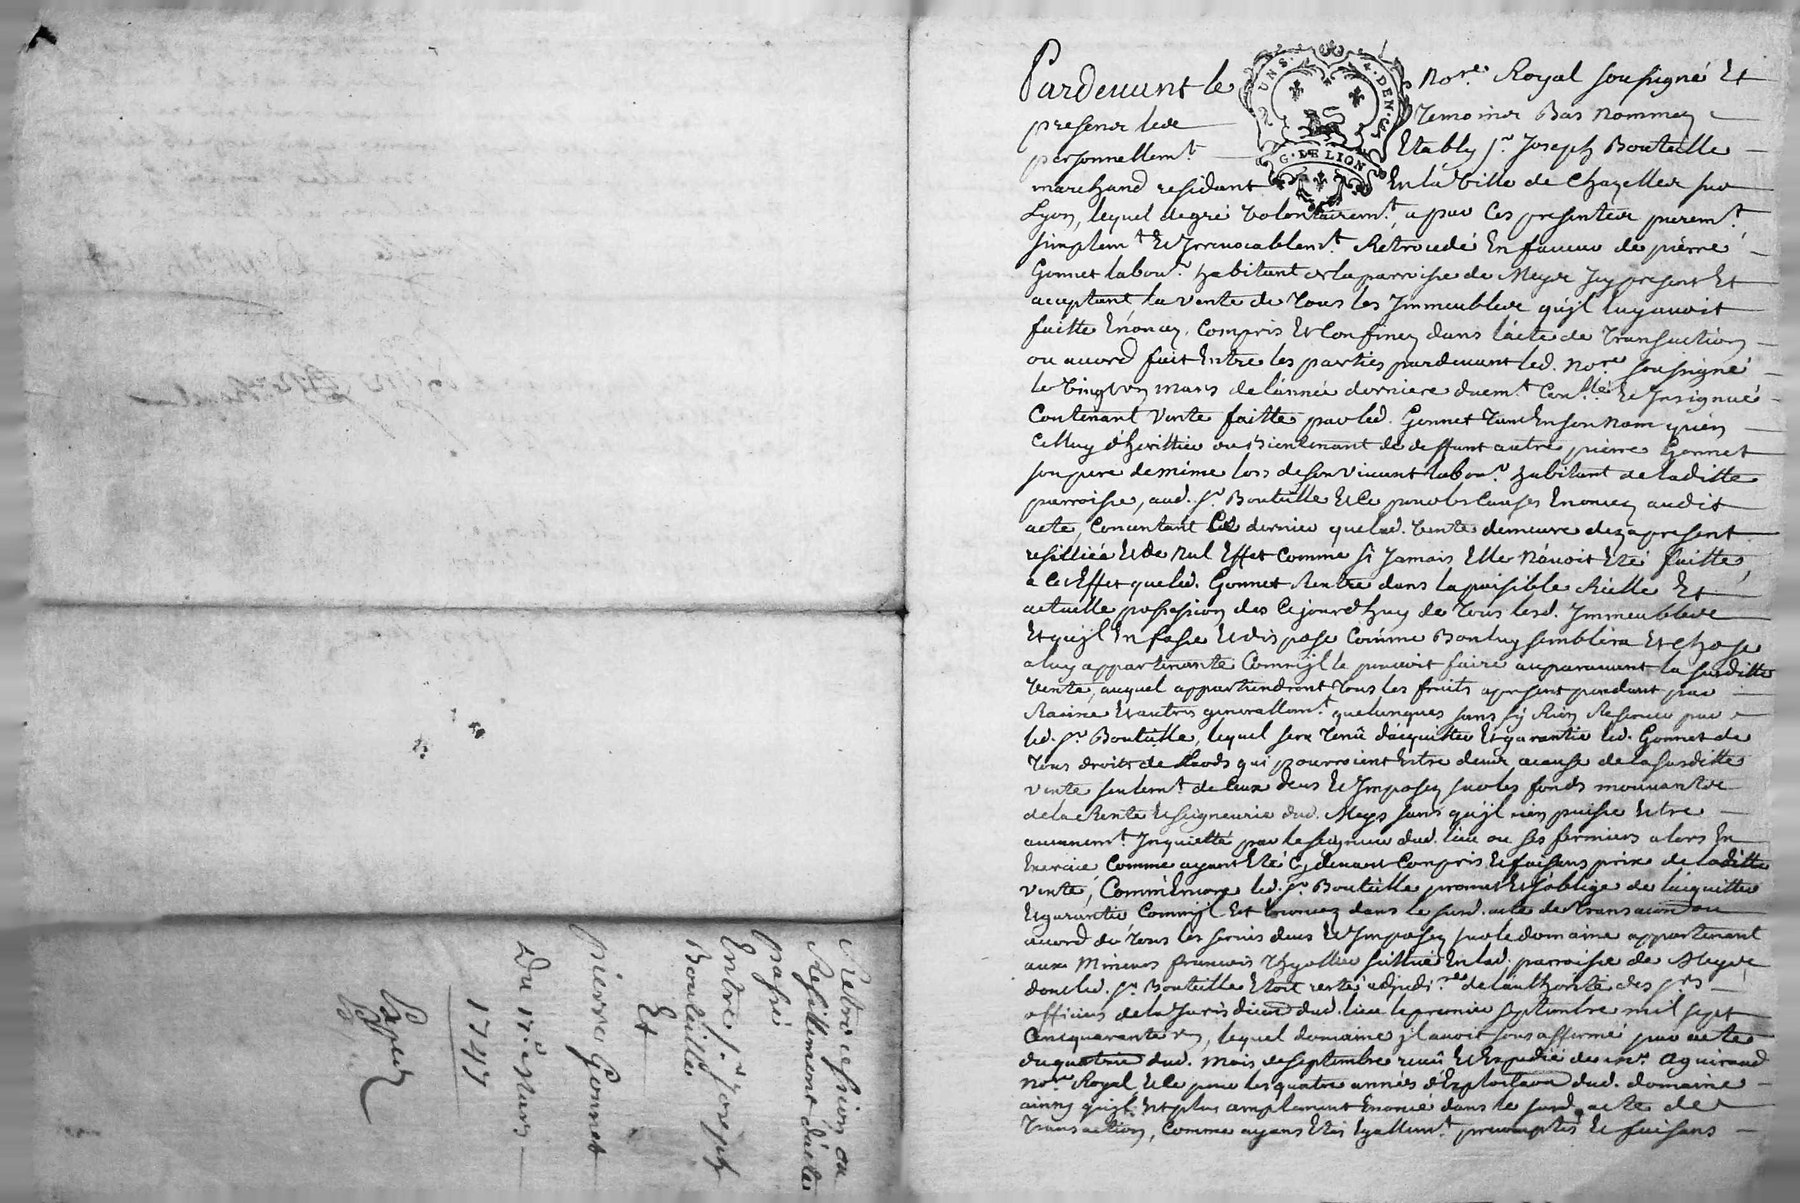 Retrocession ou
Resiliment d'acte
passé
Entre Sr. Joseph
Bouteille
Et
pierre Gonnet
Du 17e. Mars
1747
UN S. 4. DEN.
G. DE LION
Pardevant le Nore. Royal soussigné Et
presence de Temoins Bas nommez
personnellemt. Etably Sr. Joseph Bouteille
marchand residant En la Ville de Chazelles sur
Lyon, lequel de gré volontairemt. a par Ces presentes puremt.
simplemt. Et Irrevocablemt. Rétrocedé En faveur de pierre
Gonnet labour. habitant de la parroisse de Meys Icy present Et
acceptant, la vente de Tous les Immeubles qu'jl luy avoit
faitte Enoncez, Compris Et Confinez dans l'acte de Transaction
ou accord fait Entre les parties pardevant led. Nore. soussigné
le Vingt mars de l'année derniere duemt. Conllé. Et Insignué
Contenant Vente faitte par led. Gonnet Tant En son Nom qu'en
Celluy d'herittier ou Bientenant de deffunt autre pierre Gonnet
son pere de même lors de son vivant labour. habitant de laditte
parroisse, aud. Sr. Bouteille Et Ce pour les Causes Enoncez audit
acte, Consentant Ce dernier que lad. Vente demeure dez a present
resilliée Et de Nul Effet Comme si Jamais Elle N'avoit Eté faitte,
a Cet Effet que led. Gonnet Rentre dans la paisible Réelle Et
actuelle possession des Cejourd'huy de Tous lesd. Immeubles
Et qu'jl En fasse Et dispose Comme Bon luy semblera Et Chose
a luy appartenante Comm'jl le pouvoit faire auparavant la susditte
Vente, auquel appartiendront Tous les fruits apresent pendant par
Racine Et autres generallemt. quelconques sans sy Rien Reserver par
led. Sr. Bouteille, lequel sera Tenû d'acquitter Et garantir led. Gonnet de
Tous droits de Laods qui pourroient Estre deus acause de la susditte
vente seulemt. de Ceux deus Et Imposez sur les fonds mouvants
de la Rente Et seigneurie dud. Meys sans qu'jl n'en puisse Estre
aucunemt. Inquietté par le seigneur dud. lieu ou ses fermiers alors En
Exercice Comme ayant Eté Cy devant Compris Et faisans prix de laditte
vente, Comm'Encore led. Sr. Bouteille promet Et s'oblige de l'acquitter
Et garantir Comm'jl Est Enoncez dans le susd. acte de transaction ou
accord de Tous les servis deus Et Imposez sur le domaine appartenant
aux Mineurs francois Thyollier scittué En lad. parroisse de Meys,
dont led. Sr. Bouteille Etoit resté adjudire. de l'authorité des Srs.
officiers de la Jurisdiction dud. lieu le premier septembre mil sept
Cent quarante lequel domaine jl avoit sous affermé par acte
du quatrie dud. Mois de septembre receû Et Expedié des me. Aguiraud
Nore. Royal, Et Ce pour les quatre années d'Exploitaon dud. domaine
ainsy qu'jl Est plus amplement Enoncé dans le susd. acte de
Transaction, Comme ayans Etés Egallemt. precomptés Et faisans